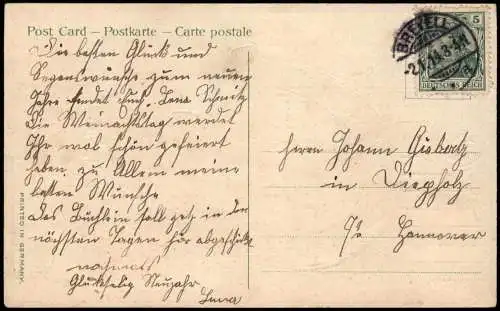 Post Card – Postkarte – Carte postale
Die besten Glück und
Segenswünsche zum neuen
Jahre sendet Euch Lena Schmitz
Die Weinachtstag werdet
Ihr wol schön gefeiert
haben, zu Allem meine
besten Wünsche
Das Büchlein soll jetz in den
nächsten Tagen für abgeschickt
Glückselig Neujahr
Lena
PRINTED IN GERMANY
BREYELL
5
DEUTSCHES REICH
Herrn Johann Giebertz
in Diepholz
Hannover